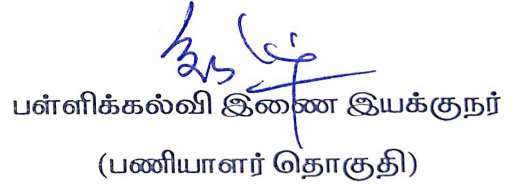 பள்ளிக்கல்வி இணை இயக்குநர்
(பணியாளர் தொகுதி)